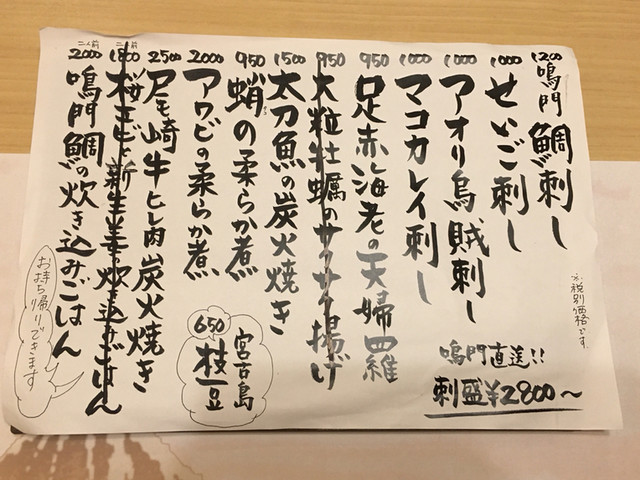 1200 鳴門鯛刺し
1000 せいご刺し
1000 アオリ烏賊刺し
1000 マコカレイ刺し
950 足赤海老の天婦羅
950 大粒牡蠣のサクサク揚げ
1500 太刀魚の炭火焼き
950 蛸の柔らか煮
2000 アワビの柔らか煮
2500 尾崎牛ヒレ肉炭火焼き
二人前 1800 桜エビと新生姜の炊き込みごはん
二人前 2000 鳴門鯛の炊き込みごはん
お持ち帰りできます
宮古島
枝豆
650
※税別価格です。
鳴門直送!!
刺盛¥2800〜